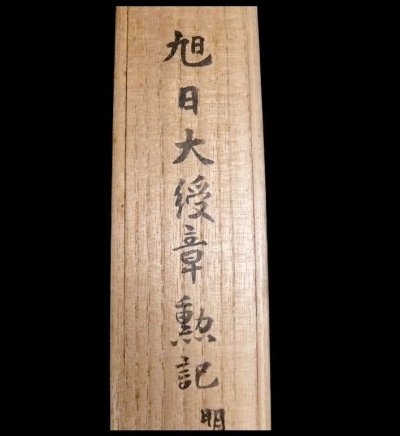 旭日大綬章勲記
明